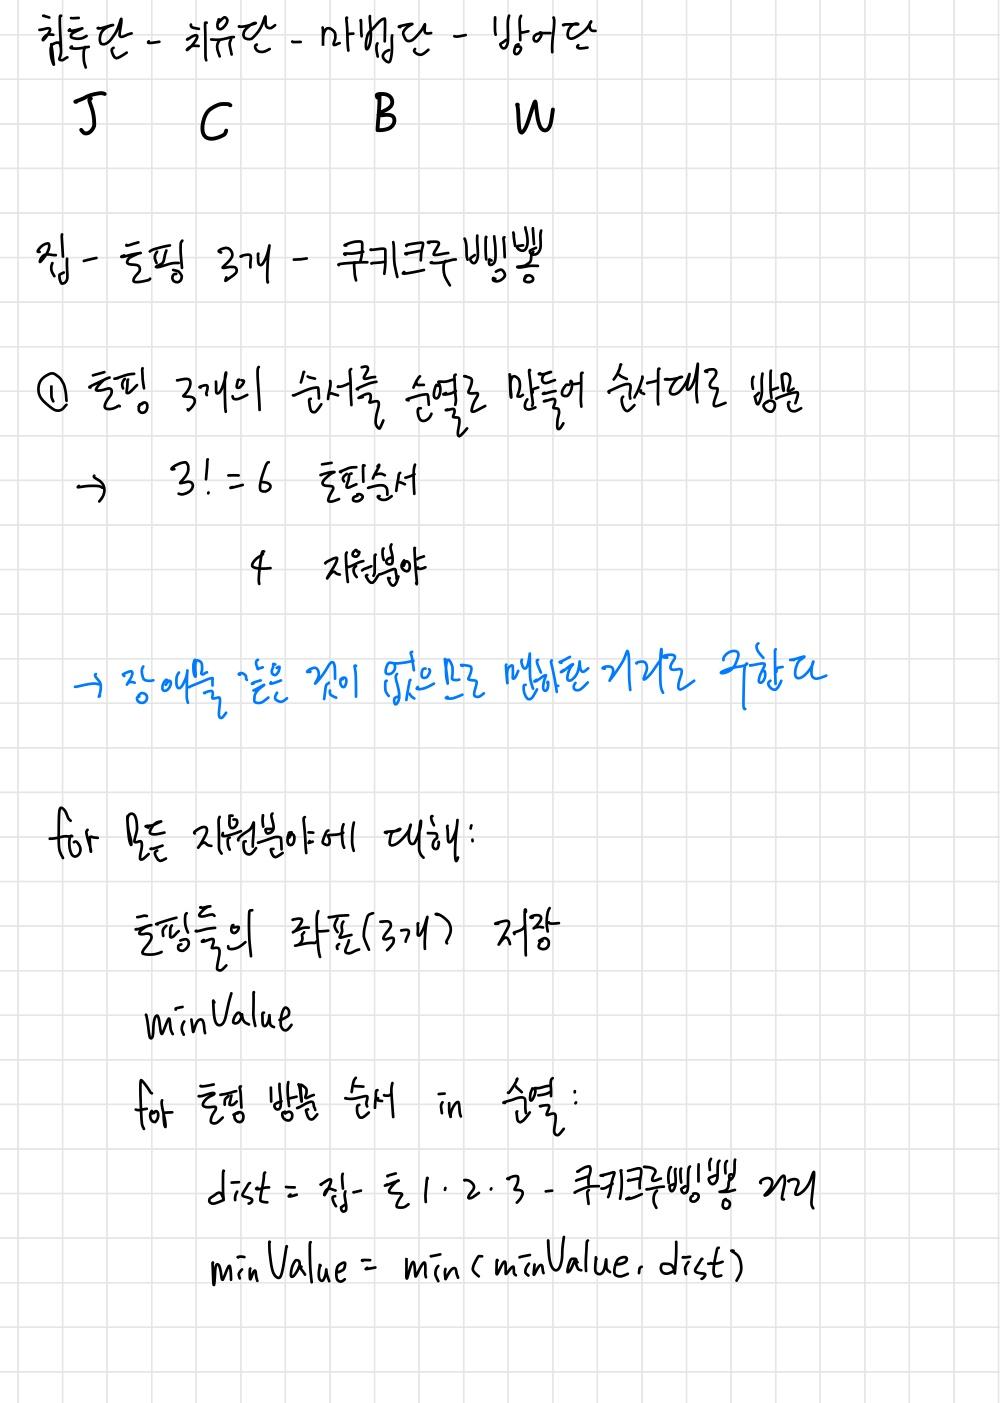 침투단 - 치유단 - 마법단 - 방어단
J C B W
집 - 토핑 3개 - 쿠키크루삥뽕
① 토핑 3개의 순서를 순열로 만들어 순서대로 방문
→ 3! = 6 토핑순서
4 지원분야
→ 장애물 같은 것이 없으므로 맨하탄 거리로 구한다
for 모든 지원분야에 대해:
토핑들의 좌표(3개) 저장
minValue
for 토핑 방문 순서 in 순열:
dist = 집 - 토 1 · 2 · 3 - 쿠키크루삥뽕 거리
minValue = min(minValue, dist)